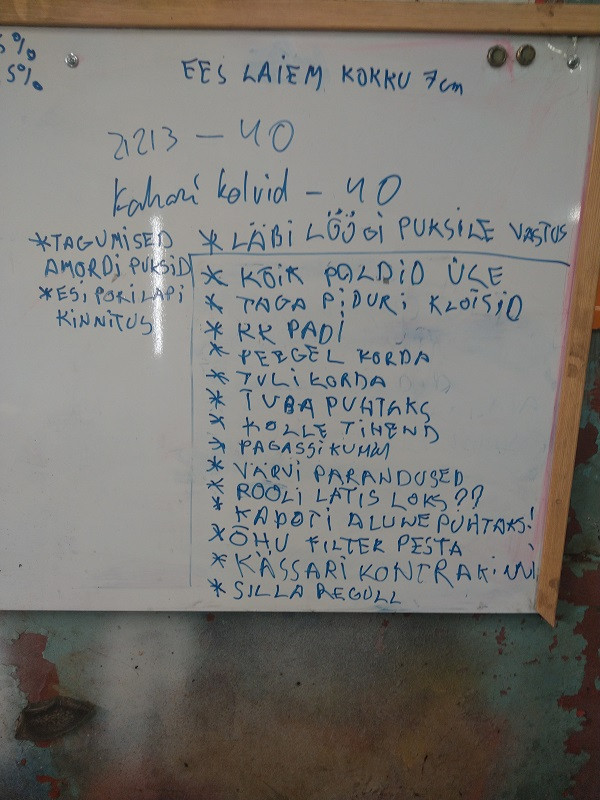 5%
5%
EES LAIEM KOKKU 7cm
21213 – 40
Kahari kolvid – 40
*TAGUMISED
AMORDI PUKSID
*ESI PORILAPI
KINNITUS
* LÄBI LÖÖGI PUKSILE VASTUS
* KÕIK POLDID ÜLE
* TAGA PIDURI KLOTSID
* KK PADI
* PEEGEL KORDA
* TULI KORDA
* TUBA PUHTAKS
* KOLLE TIHEND
* PAGASSI KUMM
* VÄRVI PARANDUSED
* ROOLI LATIS LOKS??
* KAPOTI ALUNE PUHTAKS!
* ÕHU FILTER PESTA
* KÄSSARI KONTRA KINNI
* SILLA REGULL